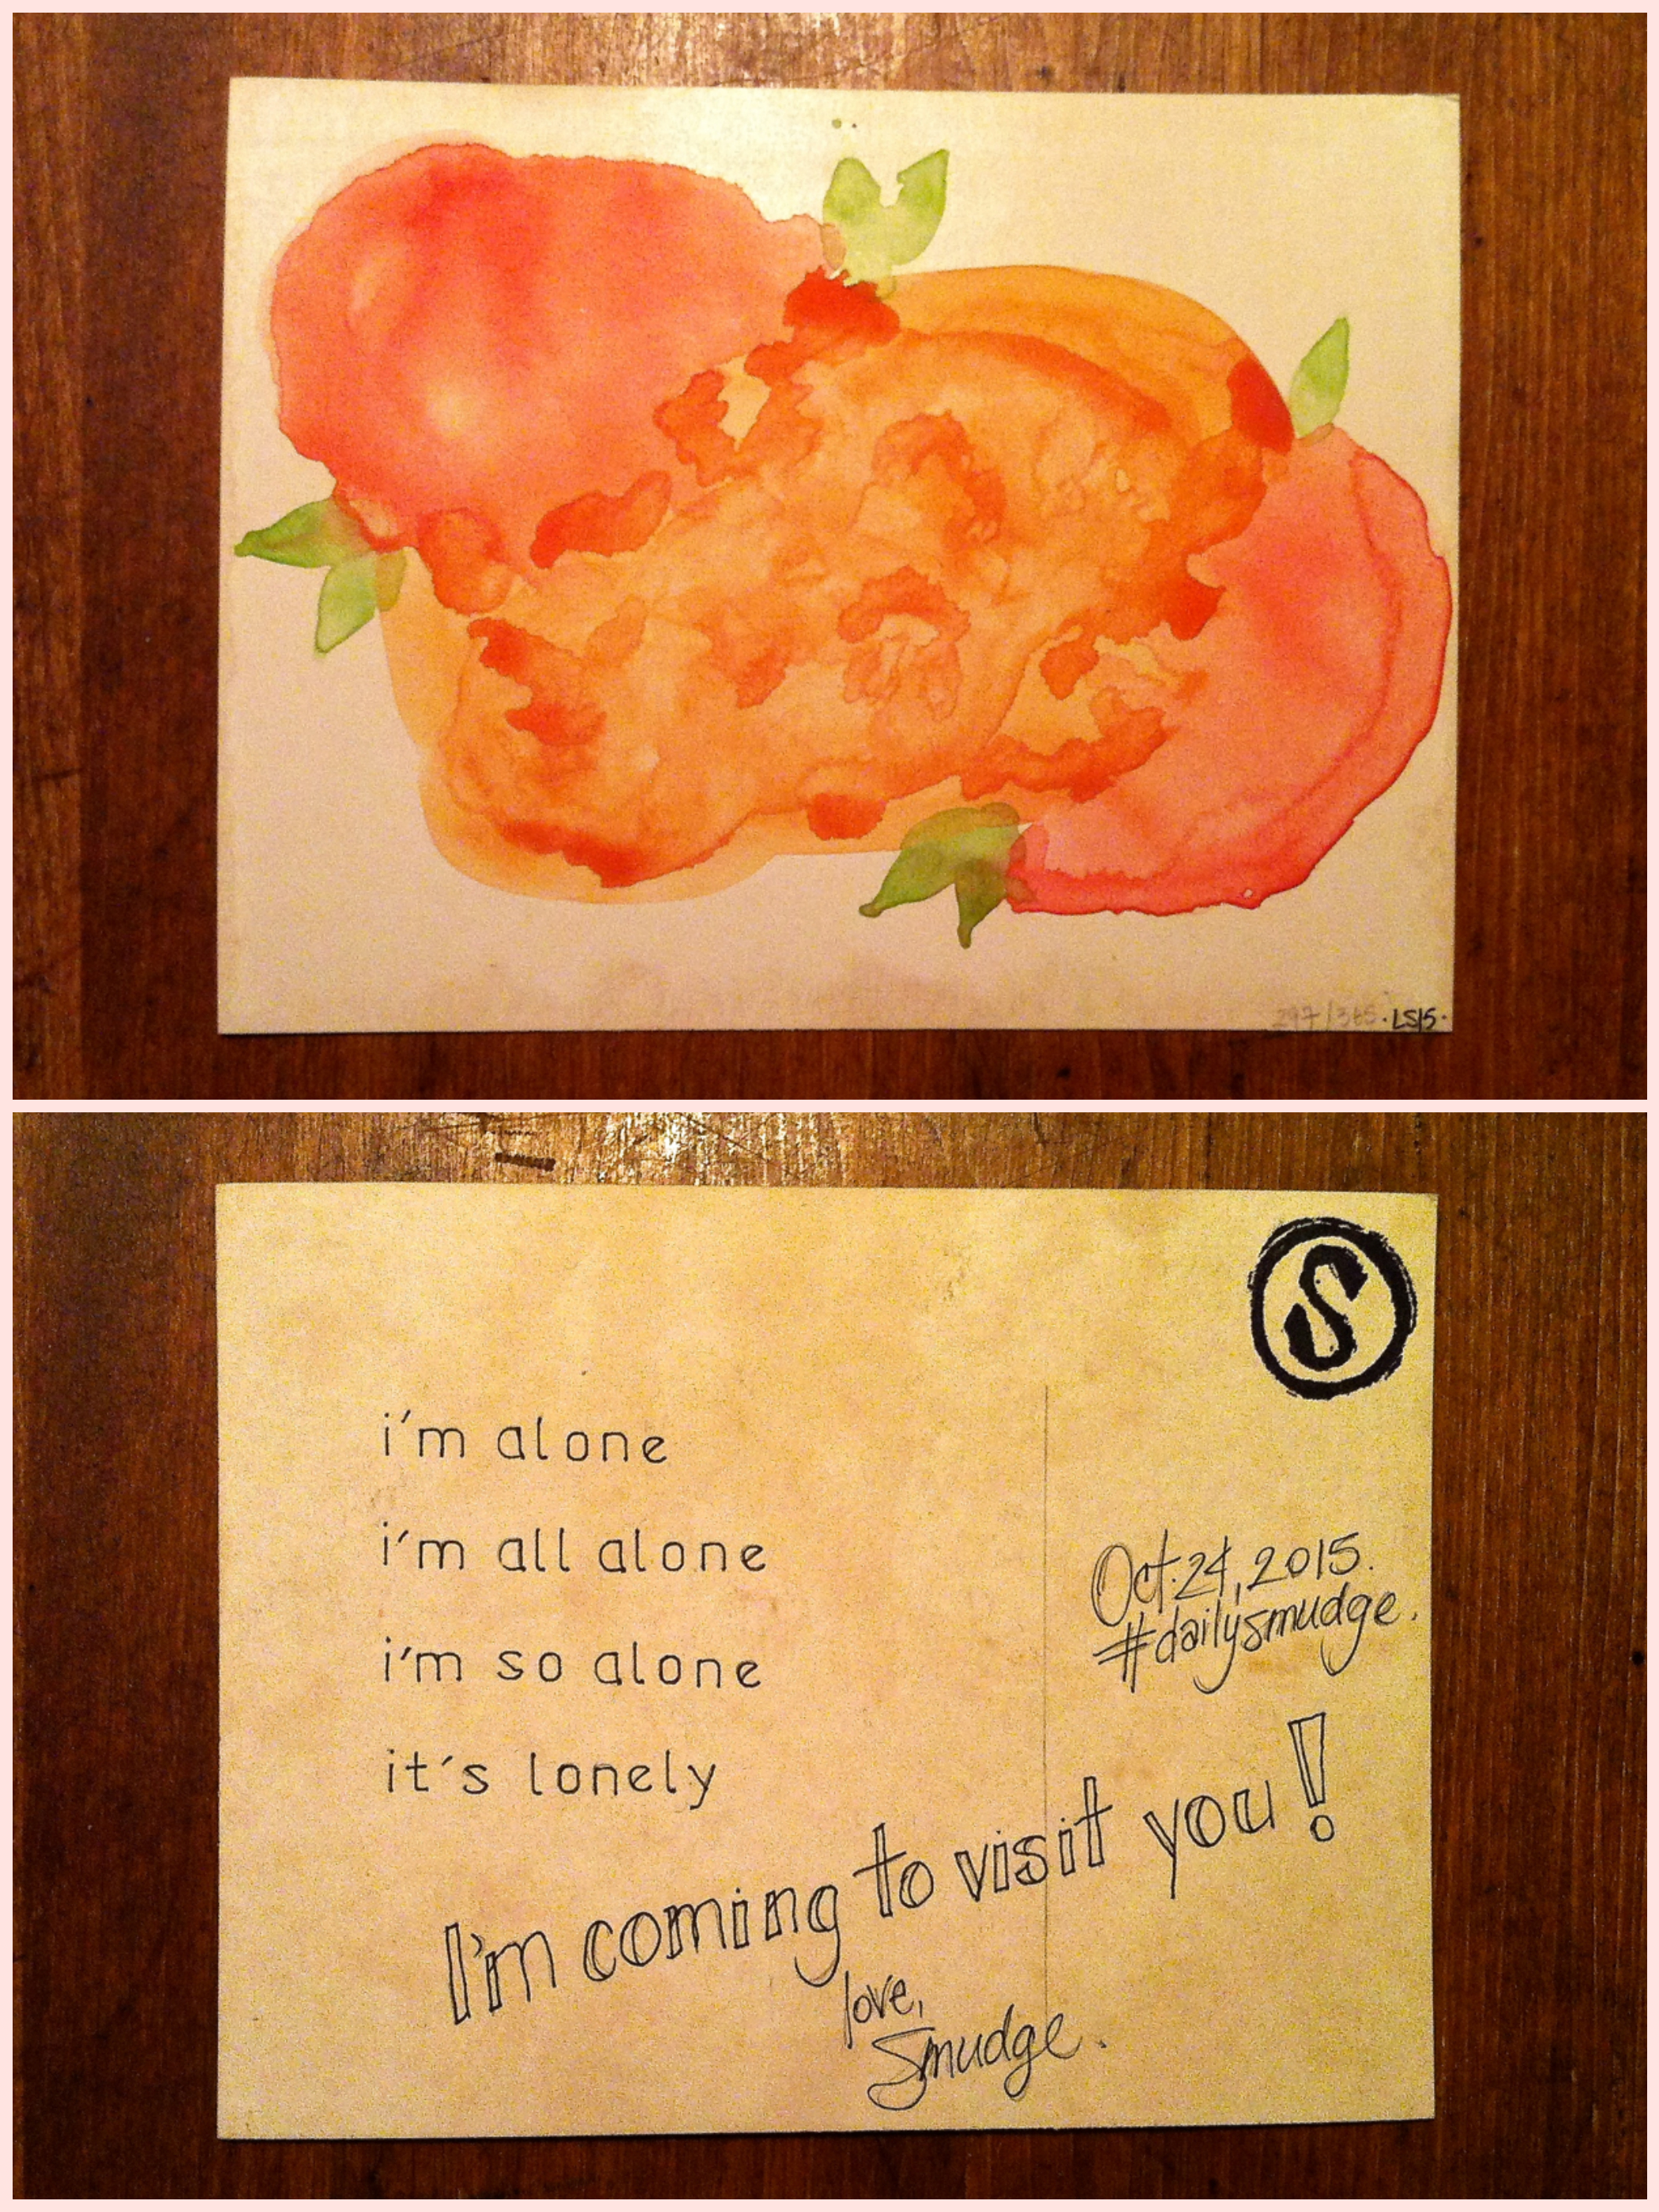 297/365 · LS15 ·
S
i'm alone
i'm all alone
i'm so alone
it's lonely
Oct. 24, 2015.
#dailysmudge.
I'm coming to visit you!
love,
Smudge.